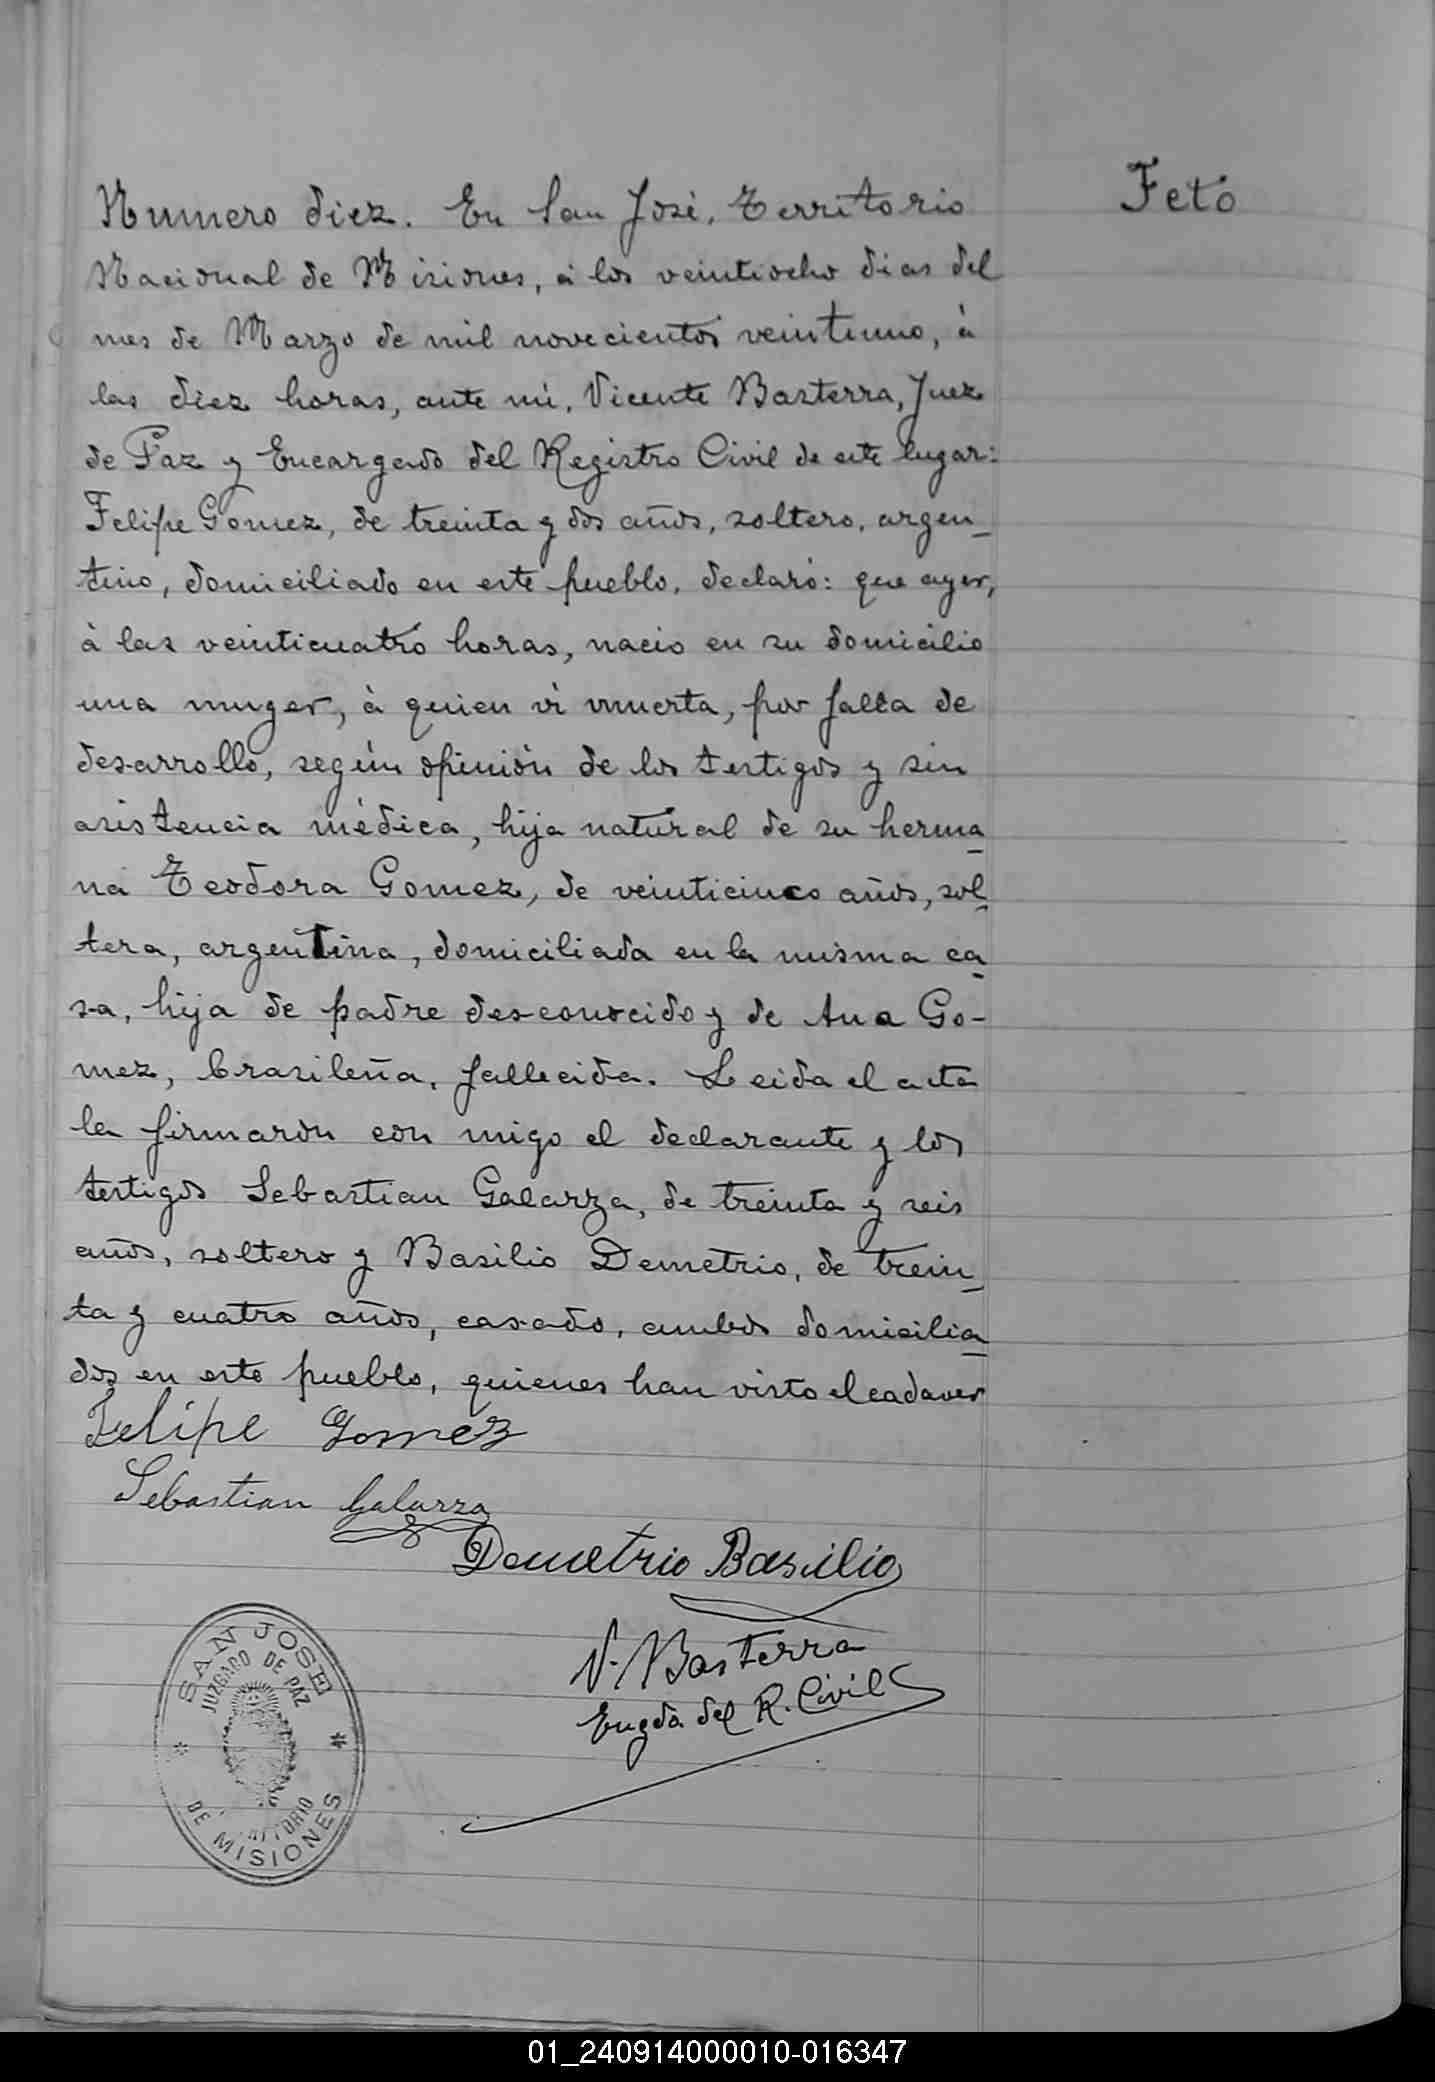 Feto
Numero diez. En San José, Territorio
Nacional de Misiones, á los veintiocho dias del
mes de Marzo de mil novecientos veintiuno, à
las diez horas, ante mi, Vicente Basterra, Juez
de Paz y Encargado del Registro Civil de este lugar:
Felipe Gomez, de treinta y dos años, soltero, argen_
tino, domiciliado en este pueblo, declaró: que ayer,
à las veinticuatro horas, nacio en su domicilio
una muger, à quien vi muerta, por falta de
desarrollo, según opinión de los testigos y sin
asistencia médica, hija natural de su herma_
na Teodora Gomez, de veinticinco años, sol_
tera, argentina, domiciliada en la misma ca_
sa, hija de padre desconocido y de Ana Go-
mez, brasileña, fallecida. Leida el acta
la firmaron con migo el declarante y los
testigos Sebastian Galarza, de treinta y seis
años, soltero y Basilio Demetrio, de trein_
ta y cuatro años, casado, ambos domicilia_
dos en este pueblo, quienes han visto el cadaver
Felipe Gomez
Sebastian Galarza
Demetrio Basilio
V. Basterra
Engdo del R. Civil
SAN JOSE
JUZGADO DE PAZ
DE MISIONES
01_240914000010-016347